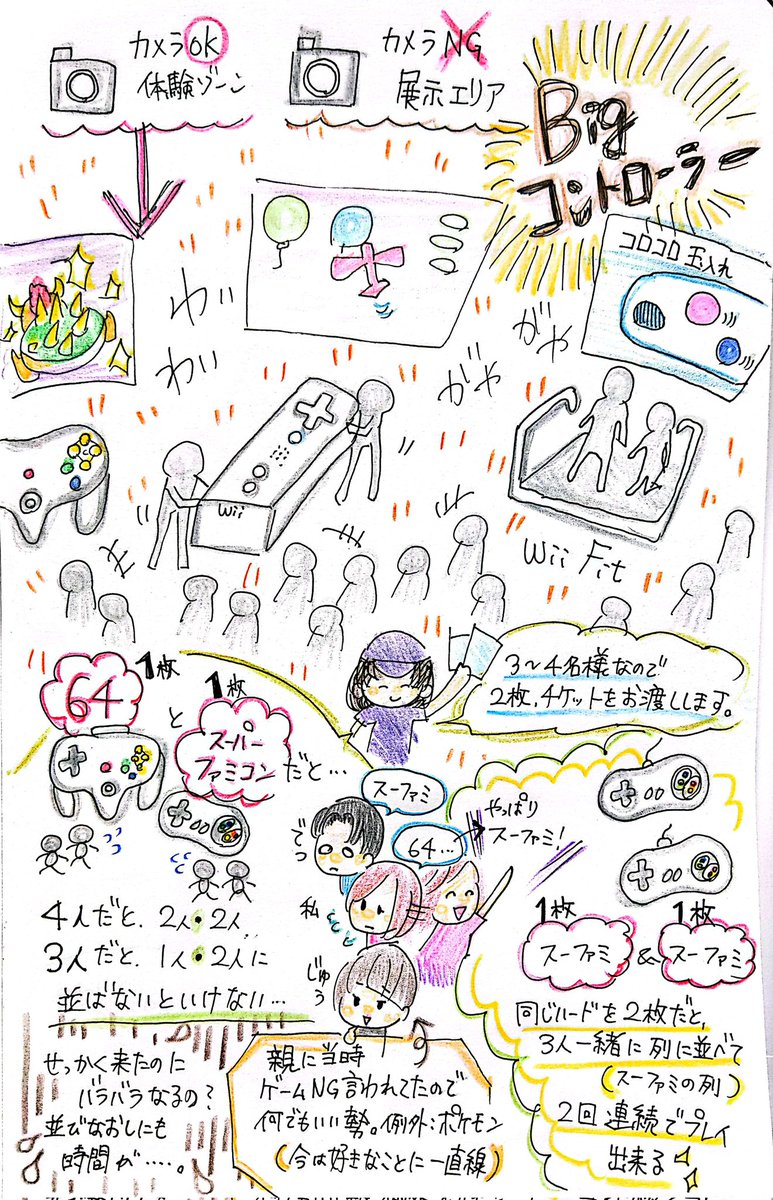 カメラok
体験ゾーン
カメラNG
展示エリア
Big
コントローラー
コロコロ 玉入れ
わい
わい
がや
がや
Wii
Wii Fit
3～4名様なので
2枚、チケットをお渡しします。
64
1枚
と
1枚
スーパー
ファミコン
だと…
スーファミ
64…
やっぱり
スーファミ!
でっ
私
じゅう
4人だと、2人・2人、
3人だと、1人・2人に
並ばないといけない…
せっかく来たのに
バラバラなるの?
並びなおしにも
時間が…。
親に当時
ゲームNG言われてたので
何でもいい勢。例外:ポケモン
(今は好きなことに一直線)
1枚
1枚
スーファミ
&
スーファミ
同じハードを2枚だと、
3人一緒に列に並べて
(スーファミの列)
2回連続でプレイ
出来る